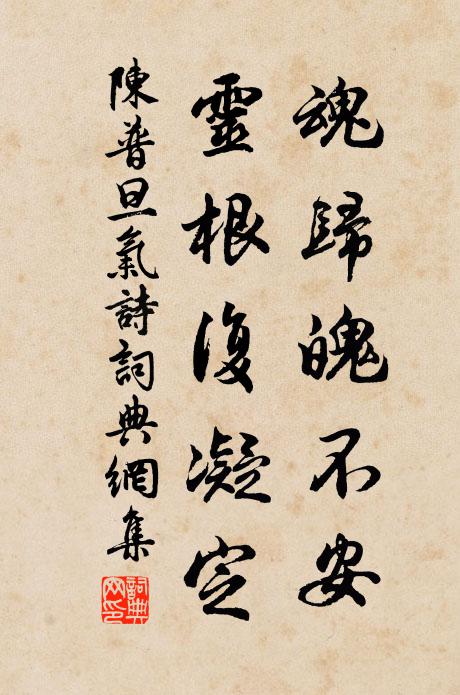 魂歸魄不安
靈根復凝定
陳普旦氣詩詞典網集
詞典